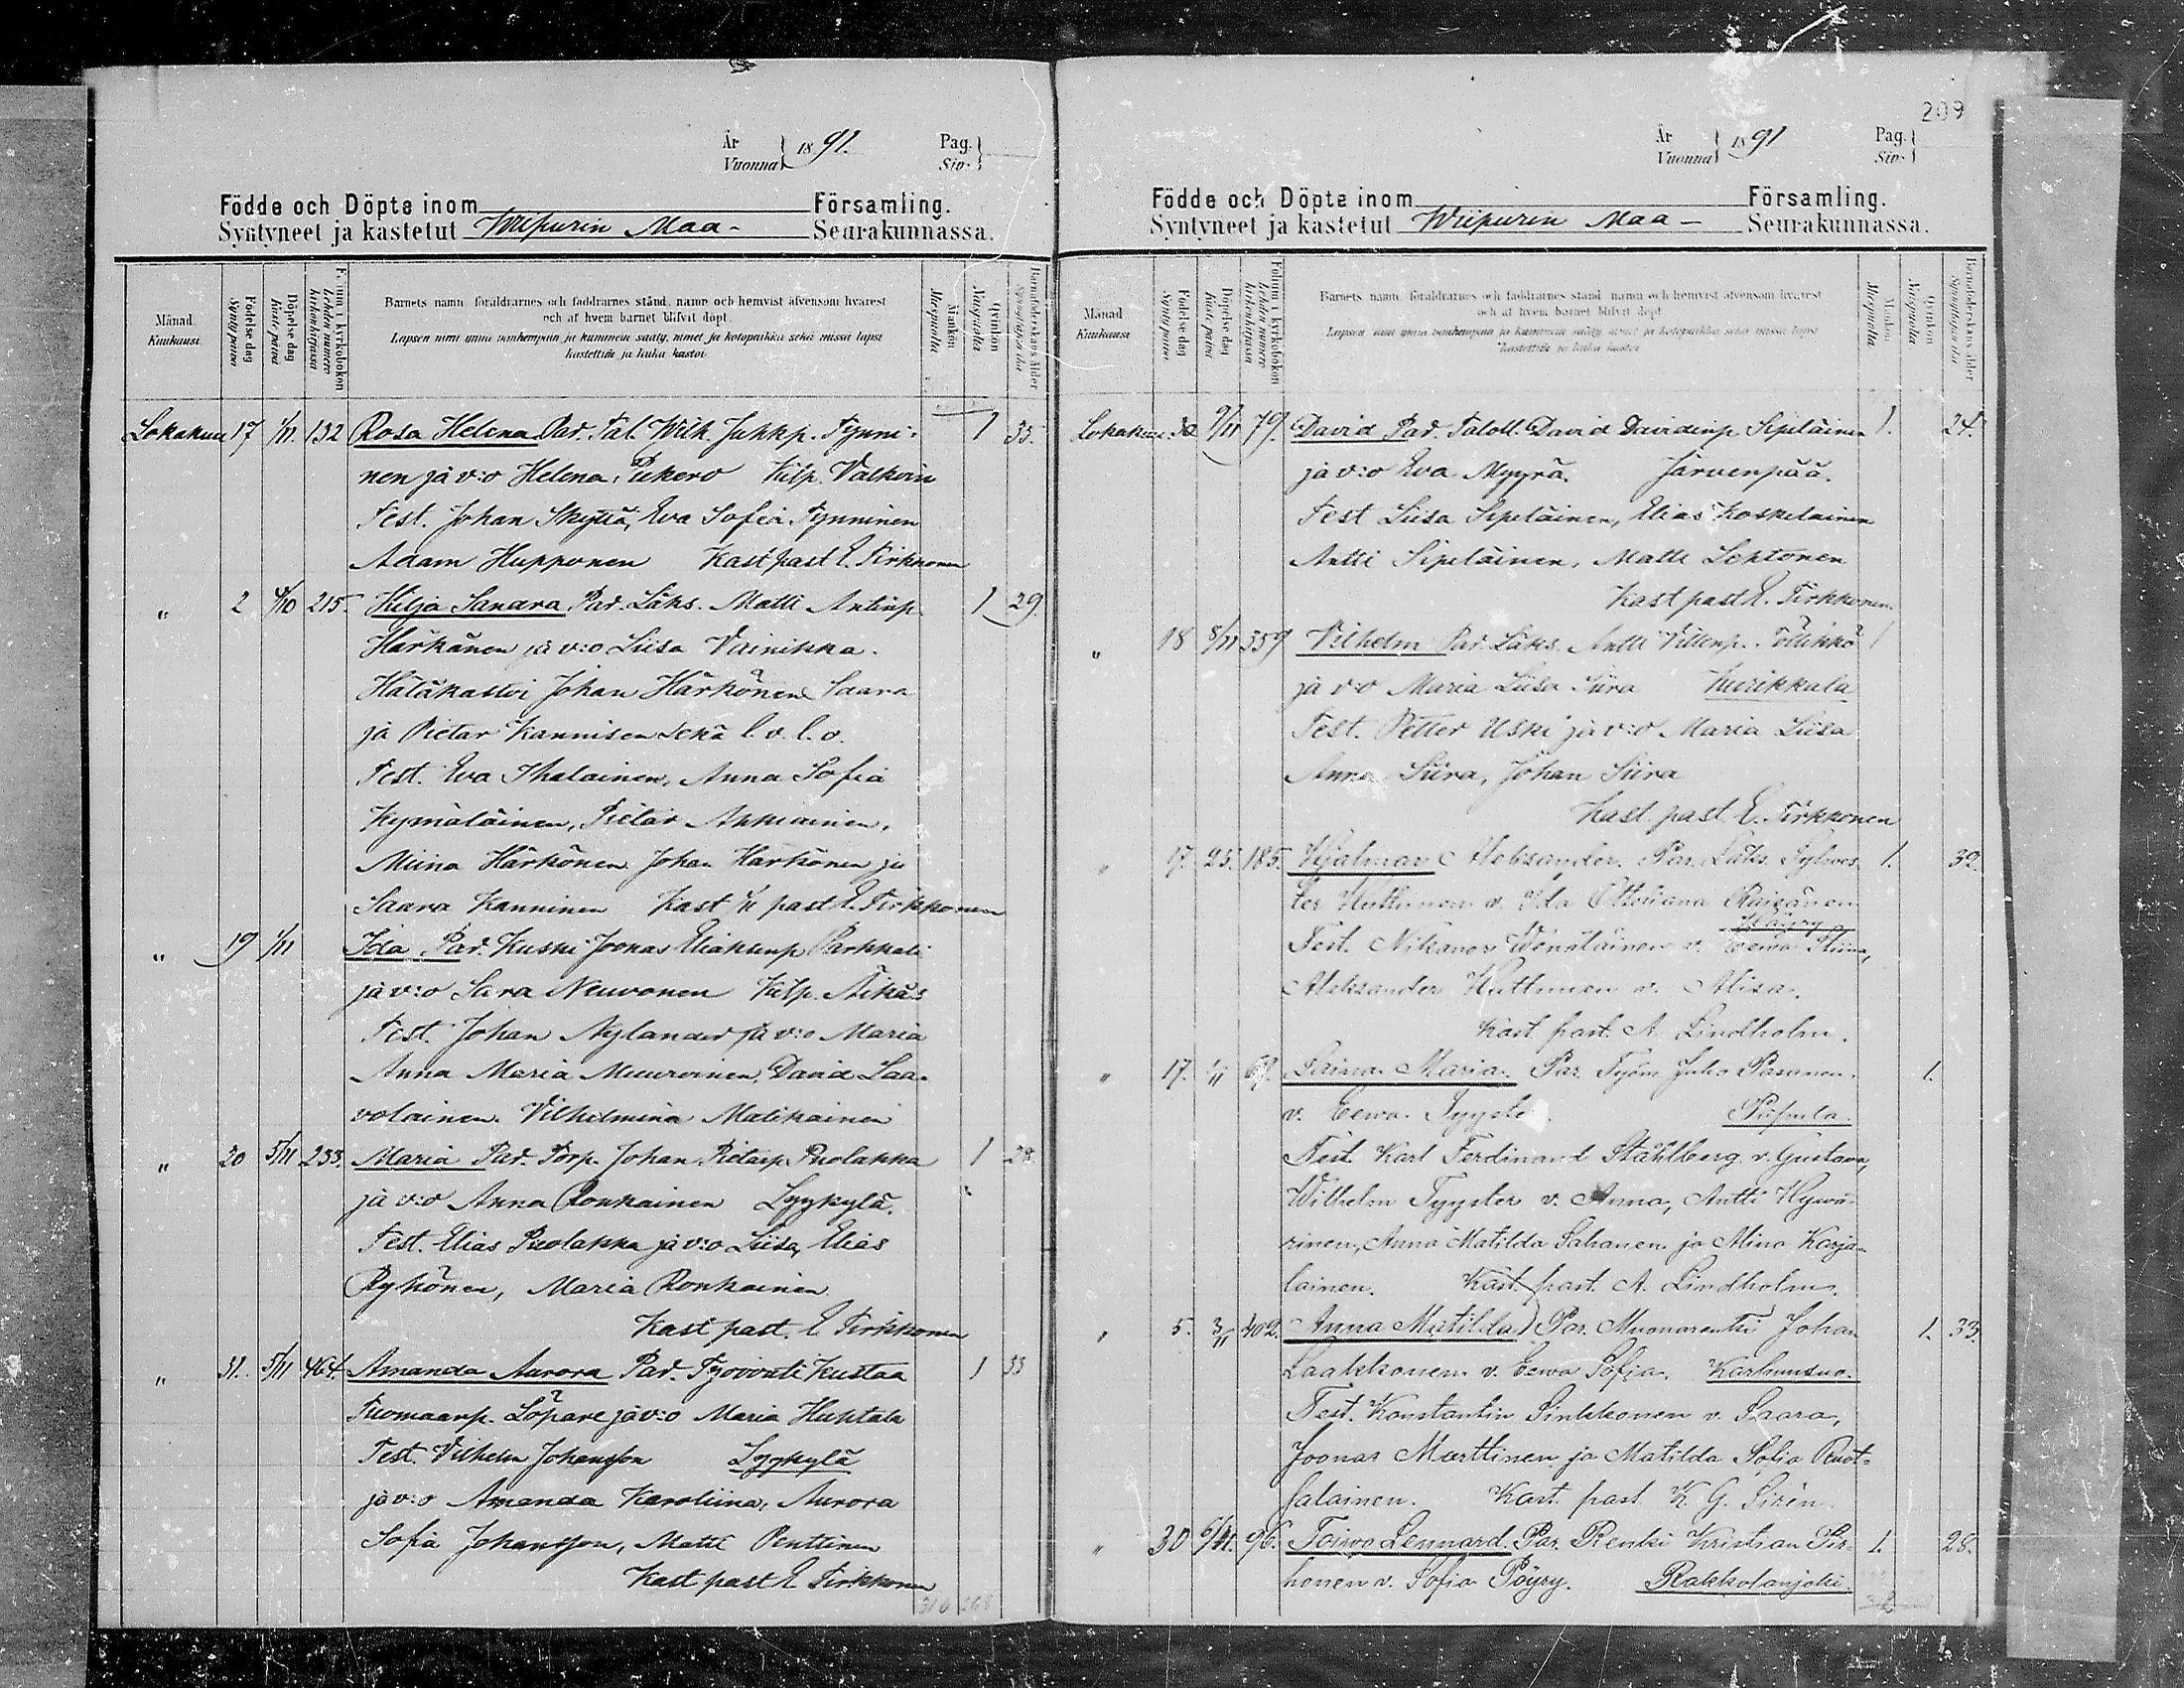 År
Vuonna 1891.
Pag.
Siv.
Födde och Döpte inom Församling.
Syntyneet ja kastetut Wiipurin Maa- Seurakunnassa.
Månad.
Kuukausi.
Födelsedag
Syntypäivä
Döpelsedag
Kastepäivä
Folium i kyrkoboken
Lehden numero kirkonkirjassa
Barnets namn föräldrarnes och faddrarnes stånd, namn och hemvist äfvensom hvarest
och af hvem barnet blifvit döpt.
Lapsen nimi ynnä vanhempain ja kummein sääty, nimet ja kotopaikka sekä missä lapsi
kastettiin ja kuka kastoi
Mankön
Miespuolia
Qvinkön
Naispuolia
Barnaföderskans ålder
Lokakuu 17 1/11 132 Rosa Helena Par. Tal. Wilh. Juhkp. Tynni- 1 35.
nen ja v:o Helena Pukero Kilp. Valkoin
Test. Johan Skyttä, Eva Sofia Tynninen
Adam Hupponen Kast past E. Tirkkonen
" 2 4/10 215. Hilja Sanara Par. Läks. Matti Antinp. 1 29.
Härkänen ja v:o Liisa Vainikka.
Hätäkastoi Johan Härkönen Saara
ja Pietar Kannisen sekä l. v. l. o.
Test. Eva Ihalainen, Anna Sofia
Kymäläinen, Pietar Akkiainen,
Miina Härkönen Johan Härkönen ja
Saara Kanninen Kast 1/11 past E. Tirkkonen
" 19 1/11 Ida Par. Kuski Joonas Eliaksenp Parkkali
ja v:o Sara Neuvonen Kilp. Äikäs
Test. Johan Nylander ja v:o Maria
Anna Maria Muuroinen, David Saa-
volainen. Vilhelmina Matikainen
" 30 5/11 233. Maria Par. Torp. Johan Pietarp Puolakka 1 28.
ja v:o Anna Ronkainen Lyykylä.
Test. Elias Puolakka ja v:o Liisa, Elias
Ryhönen, Maria Ronkainen
Kast past. E Tirkkonen
" 31. 5/11 464. Amanda Aurora Par. Työvouti Kustaa 1 33
Tuomaanp. Löpare ja v:o Maria Huhtala
Test. Vilhelm Johansson Lyykylä
ja v:o Amanda Karoliina, Aurora
Sofia Johansson, Matti Penttinen
Kast past E Tirkkonen
310 268
209
År
Vuonna 1891
Pag.
Siv.
Födde och Döpte inom Församling.
Syntyneet ja kastetut Wiipurin Maa- Seurakunnassa.
Månad
Kuukausi
Födelsedag
Syntypäivä
Döpelsedag
Kastepäivä
Folium i kyrkoboken
Lehden numero kirkonkirjassa
Barnets namn föräldrarnes och faddrarnes stånd namn och hemvist äfvensom hvarest
och af hvem barnet blifvit döpt
Lapsen nimi ynnä vanhempain ja kummein sääty, nimet ja kotopaikka sekä missä lapsi
kastettiin ja kuka kastoi
Mankön
Miespuolia
Qvinkön
Naispuolia
Barnaföderskans ålder
Lokakuu 9/11 79. David Par. Taloll. David Davidinp Sipiläinen 1. 24.
ja v:o Eva Myyrä. Järvenpää.
Test Liisa Sipiläinen, Elias Koskelainen
Antti Sipiläinen, Matti Lehtonen
Kast past E. Tirkkonen.
" 18 8/11 359 Vilhelm Par. Läks. Antti Villenp. Töllikkö 1
ja v:o Maria Liisa Siira Kurikkala
Test. Petter Uski ja v:o Maria Liisa
Anna Siira, Johan Siira
Kast past E. Tirkkonen
" 17. 25. 185. Hjalmar Aleksander. Par. Läks. Sylves- 1. 32.
ter Huttunen v. Ida Ottiliana Räisänen
Test. Nikanor Wenäläinen v. Eewa Stiina,
Aleksander Huttunen v. Alisa.
Kast. past. A. Lindholm.
" 17. 1/11 69. Saima Maria. Par. Työm. Juho Pasanen. 1.
v. Eewa. Tyyster. Papula.
Test. Karl Ferdinand Ståhlberg v. Gustava,
Wilhelm Tyyster v. Anna, Antti Hywä-
rinen, Anna Matilda Sahanen ja Alina Karja-
lainen. Kast. past. A. Lindholm.
" 5. 3/11 402. Anna Matilda) Par. Muonarenki Johan 1. 33.
Laakkonen. v. Eewa Sofia. Karhunsuo.
Test. Konstantin Sinkkonen v. Saara,
Joonas Marttinen ja Matilda Sofia Ruot-
salainen. Kast. past. K. G. Sirén.
" 30 6/11. 96. Toiwo Lennard. Par. Renki Kristian Pir- 1. 28.
honen v. Sofia Pöyry. Rakkolanjoki.